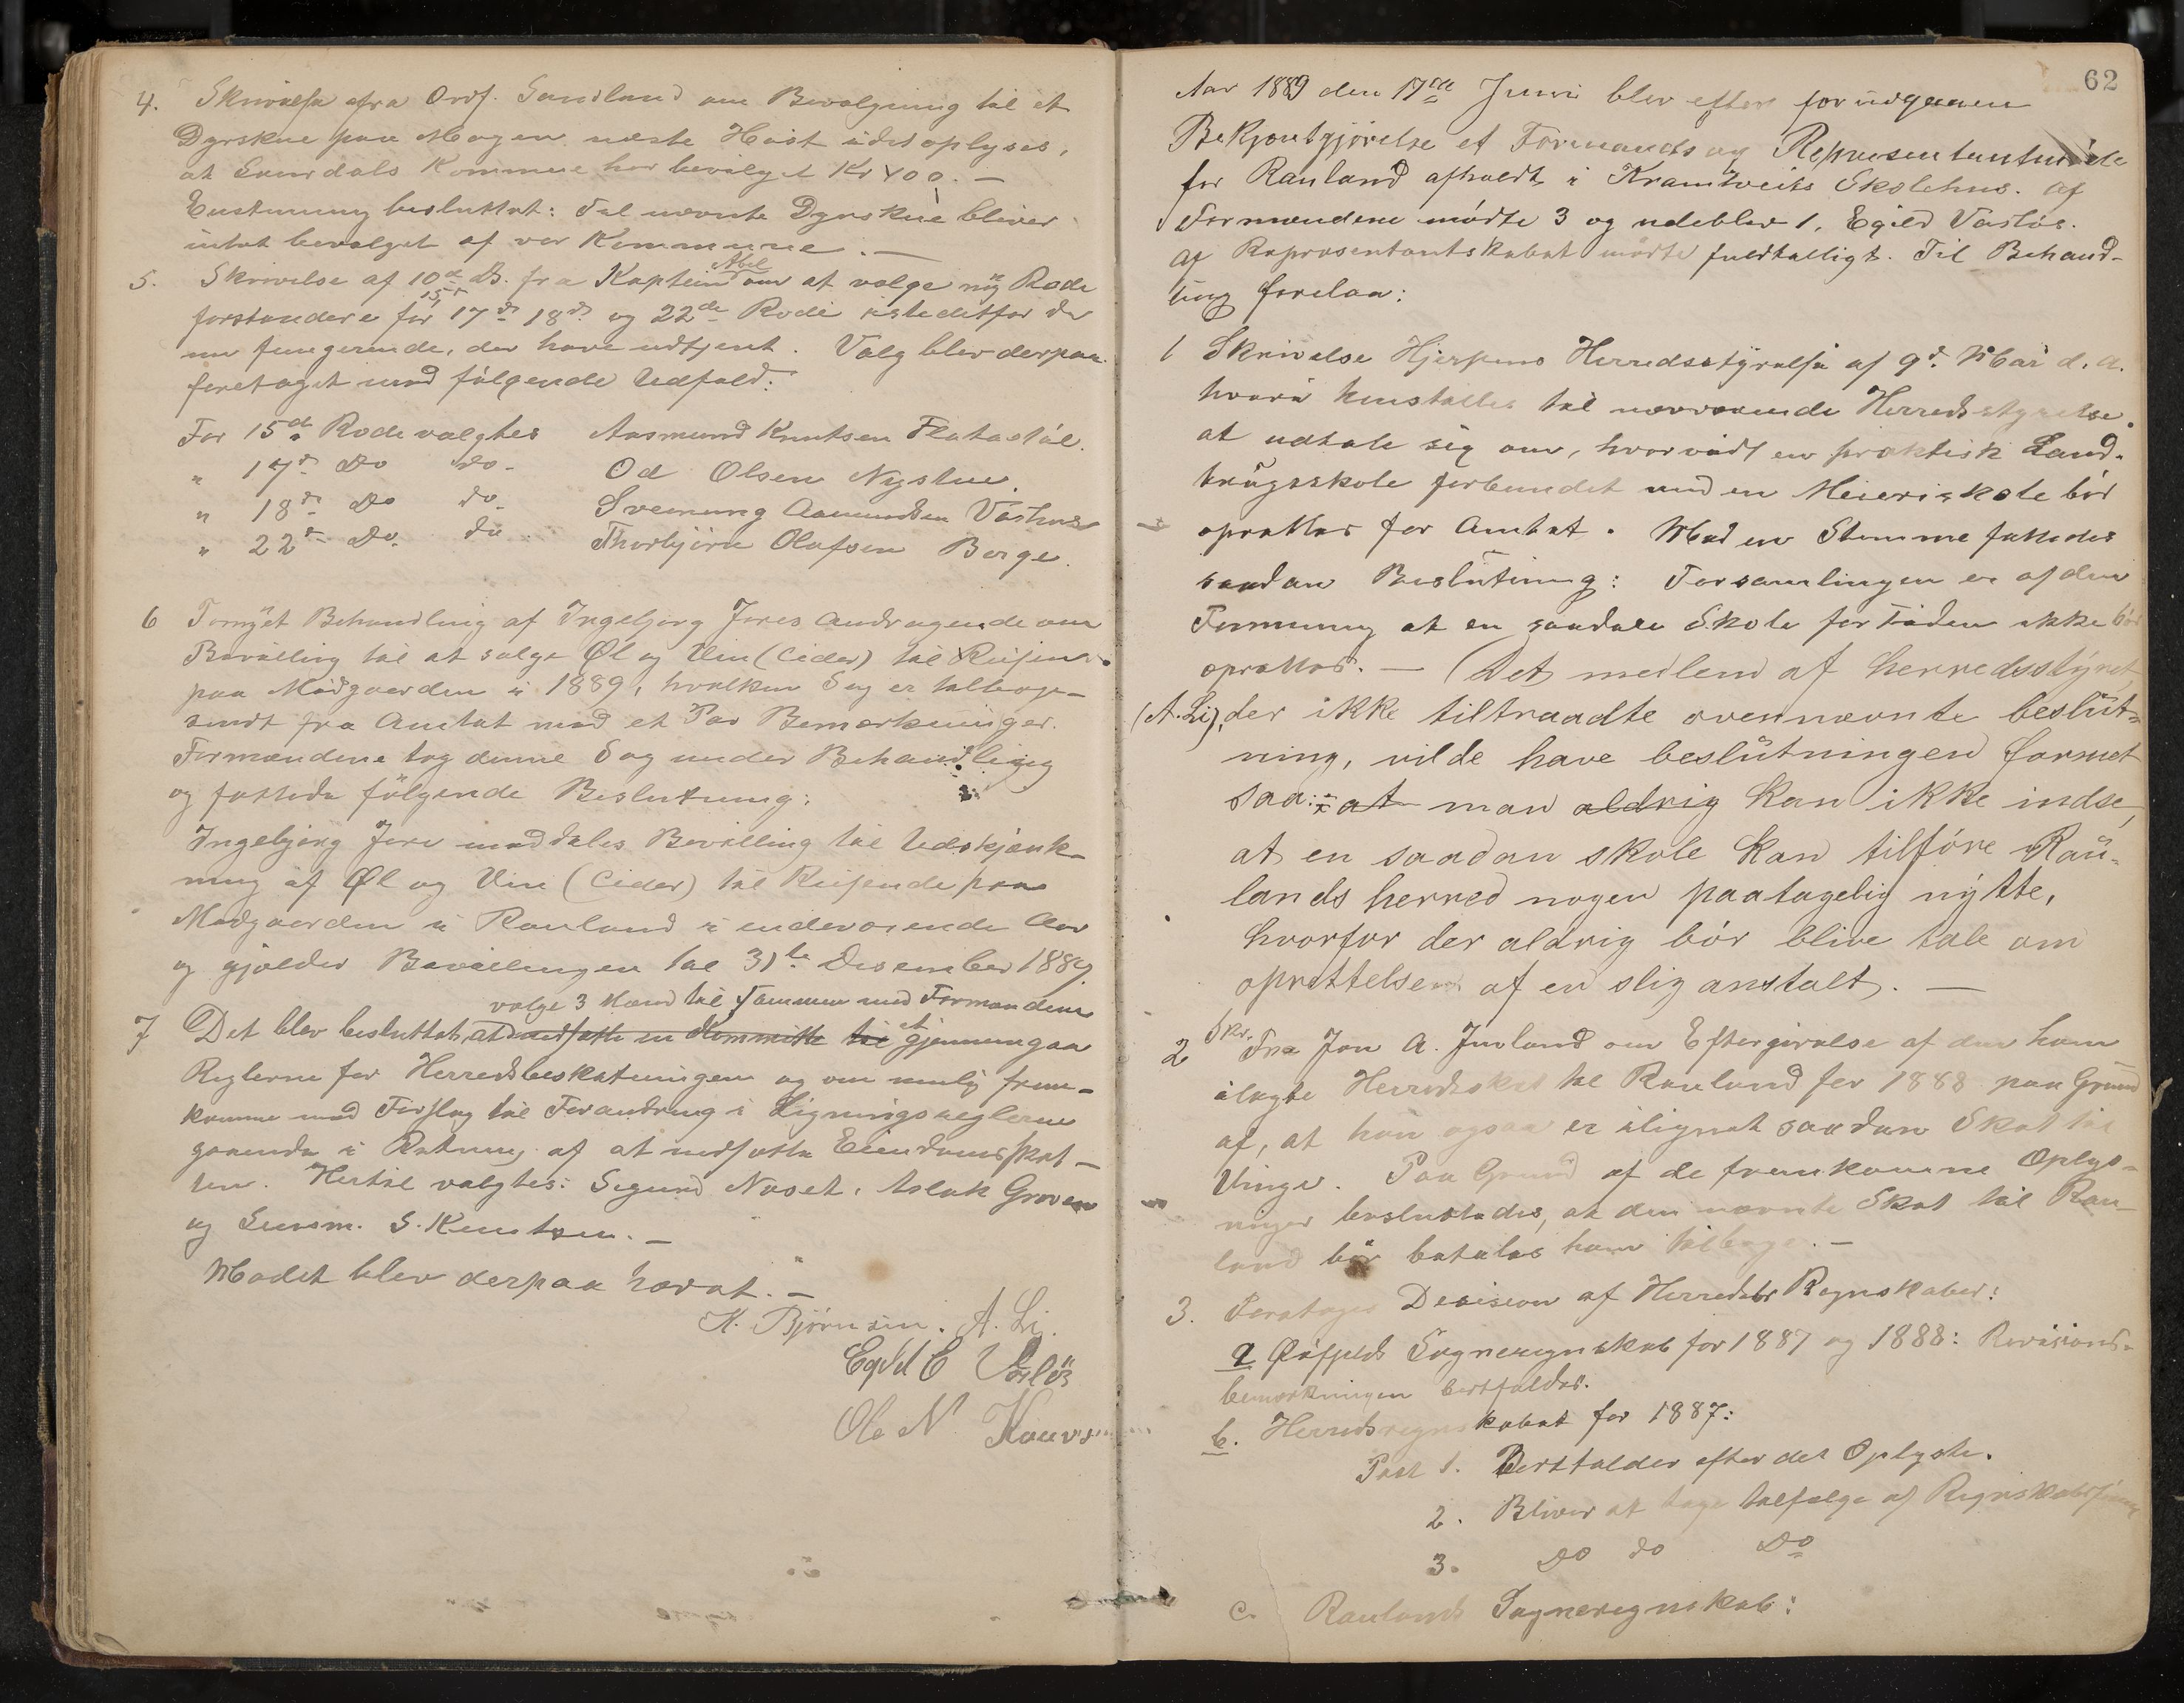 4. Skrivelse fra Ordf. Sundland om Bevilgning til et
Dyrskue paa Mogen næste Høst idet oplyses,
at Laurdals Kommune har bevilget Kr 400. —
Enstemmig besluttet: Til nævnte Dyrskue bliver
intet bevilget af vor Kommune. —
5. Skrivelse af 10de ds. fra Kaptein Abel om at vælge ny Rode
forstandere for 15de 17de 18de og 22de Rode istedetfor de
nu fungerende, der have udtjent. Valg blev derpaa
foretaget med følgende Udfald:
For 15de Rode valgtes Aasmund Knutsen Flatastøl.
" 17de Do do- Od Olsen Nystue.
" 18de Do do- Sveinung Aamundsen Vashus
" 22de Do. do Thorbjørn Olafsen Berge.
6 Fornyet Behandling af Ingebjørg Jores Andragende om
Bevilling til at sælge Øl og Vin (Cider) til Reisende
paa Mødgaarden i 1889, hvilken Sag er tilbage-
sendt fra Amtet med et Par Bemærkninger.
Formændene tog denne Sag under Behandling
og fattede følgende Beslutning:
Ingebjørg Jore meddeles Bevilling til Udskjænk-
ning af Øl og Vin (Cider) til Reisende paa
Mødgaarden i Rauland i indeværende Aar
og gjælder Bevillingen til 31te Desember 1889.
vælge 3 Mænd til sammen med Formændene
7 Det blev besluttet at nedsætte en Kommitte til at gjennemgaa
Reglerne for Herredsbeskatningen og om mulig frem-
komme med Forslag til Forandring i Ligningsreglerne
gaaende i Retning af at nedsætte Eiendomsskat-
ten. Hertil valgtes: Sigurd Næset, Aslak Groven
og Lensm. S. Knutsen. —
Mødet blev derpaa hævet. —
K. Bjørnsen. A. Li.
Egild E Varlös
Ole N
62
Aar 1889 den 17de Juni blev efter forudgaaen
Bekjøntgjørelse et Formands og Representantmöde
for Rauland afholdt i Kramtveits Skolehus. Af
Formændene mödte 3 og udeblev 1, Egild Varlös.
Af Repræsentantskabet mödte fuldtalligt. Til Behand-
ling forelaa:
1 Skrivelse Hjerpens Herredsstyrelse af 9de Mai d. A.
hvori henstilles til nærværende Herredsstyrelse.
at udtale sig om, hvorvidt en praktisk Land-
brugsskole forbundet med en Meieriskole bör
oprettes for Amtet. Med en Stemme fattedes
saadan Beslutning: Forsamlingen er af den
Formening at en saadan Skole for Tiden ikke bör
oprettes. — (Det medlem af herredsstyret
(A. Li), der ikke tiltraadte ovennævnte beslut-
ning, vilde have beslutningen formet
saa: at man aldrig kan ikke indse,
at en saadan skole kan tilföre Rau-
lands herred nogen paatagelig nytte,
hvorfor der aldrig bör blive tale om
oprettelsen af en slig anstalt. —
2 Skr. Fra Jon A. Juvland om Eftergivelse af den ham
ilagte Herredsskat til Rauland for 1888 paa Grund
af, at han ogsaa er ilignet saadan Skat til
Vinje. Paa Grund af de fremkomne Oplys-
ninger besluttedes, at den nævnte Skat til Rau-
land bör betales ham tilbage. —
3. Foretages Desision af Herredets Regnskaber:
a Øifjelds Sogneregnskab for 1887 og 1888: Revisions-
bemærkningen bortfaldes.
b. Herredsregnskabet for 1887:
Post 1. Bortfalder efter det Oplyste.
2. Bliver at tage tilfølge af Regnskabsfører
3. Do do Do
c. Raulands Sogneregnskab: